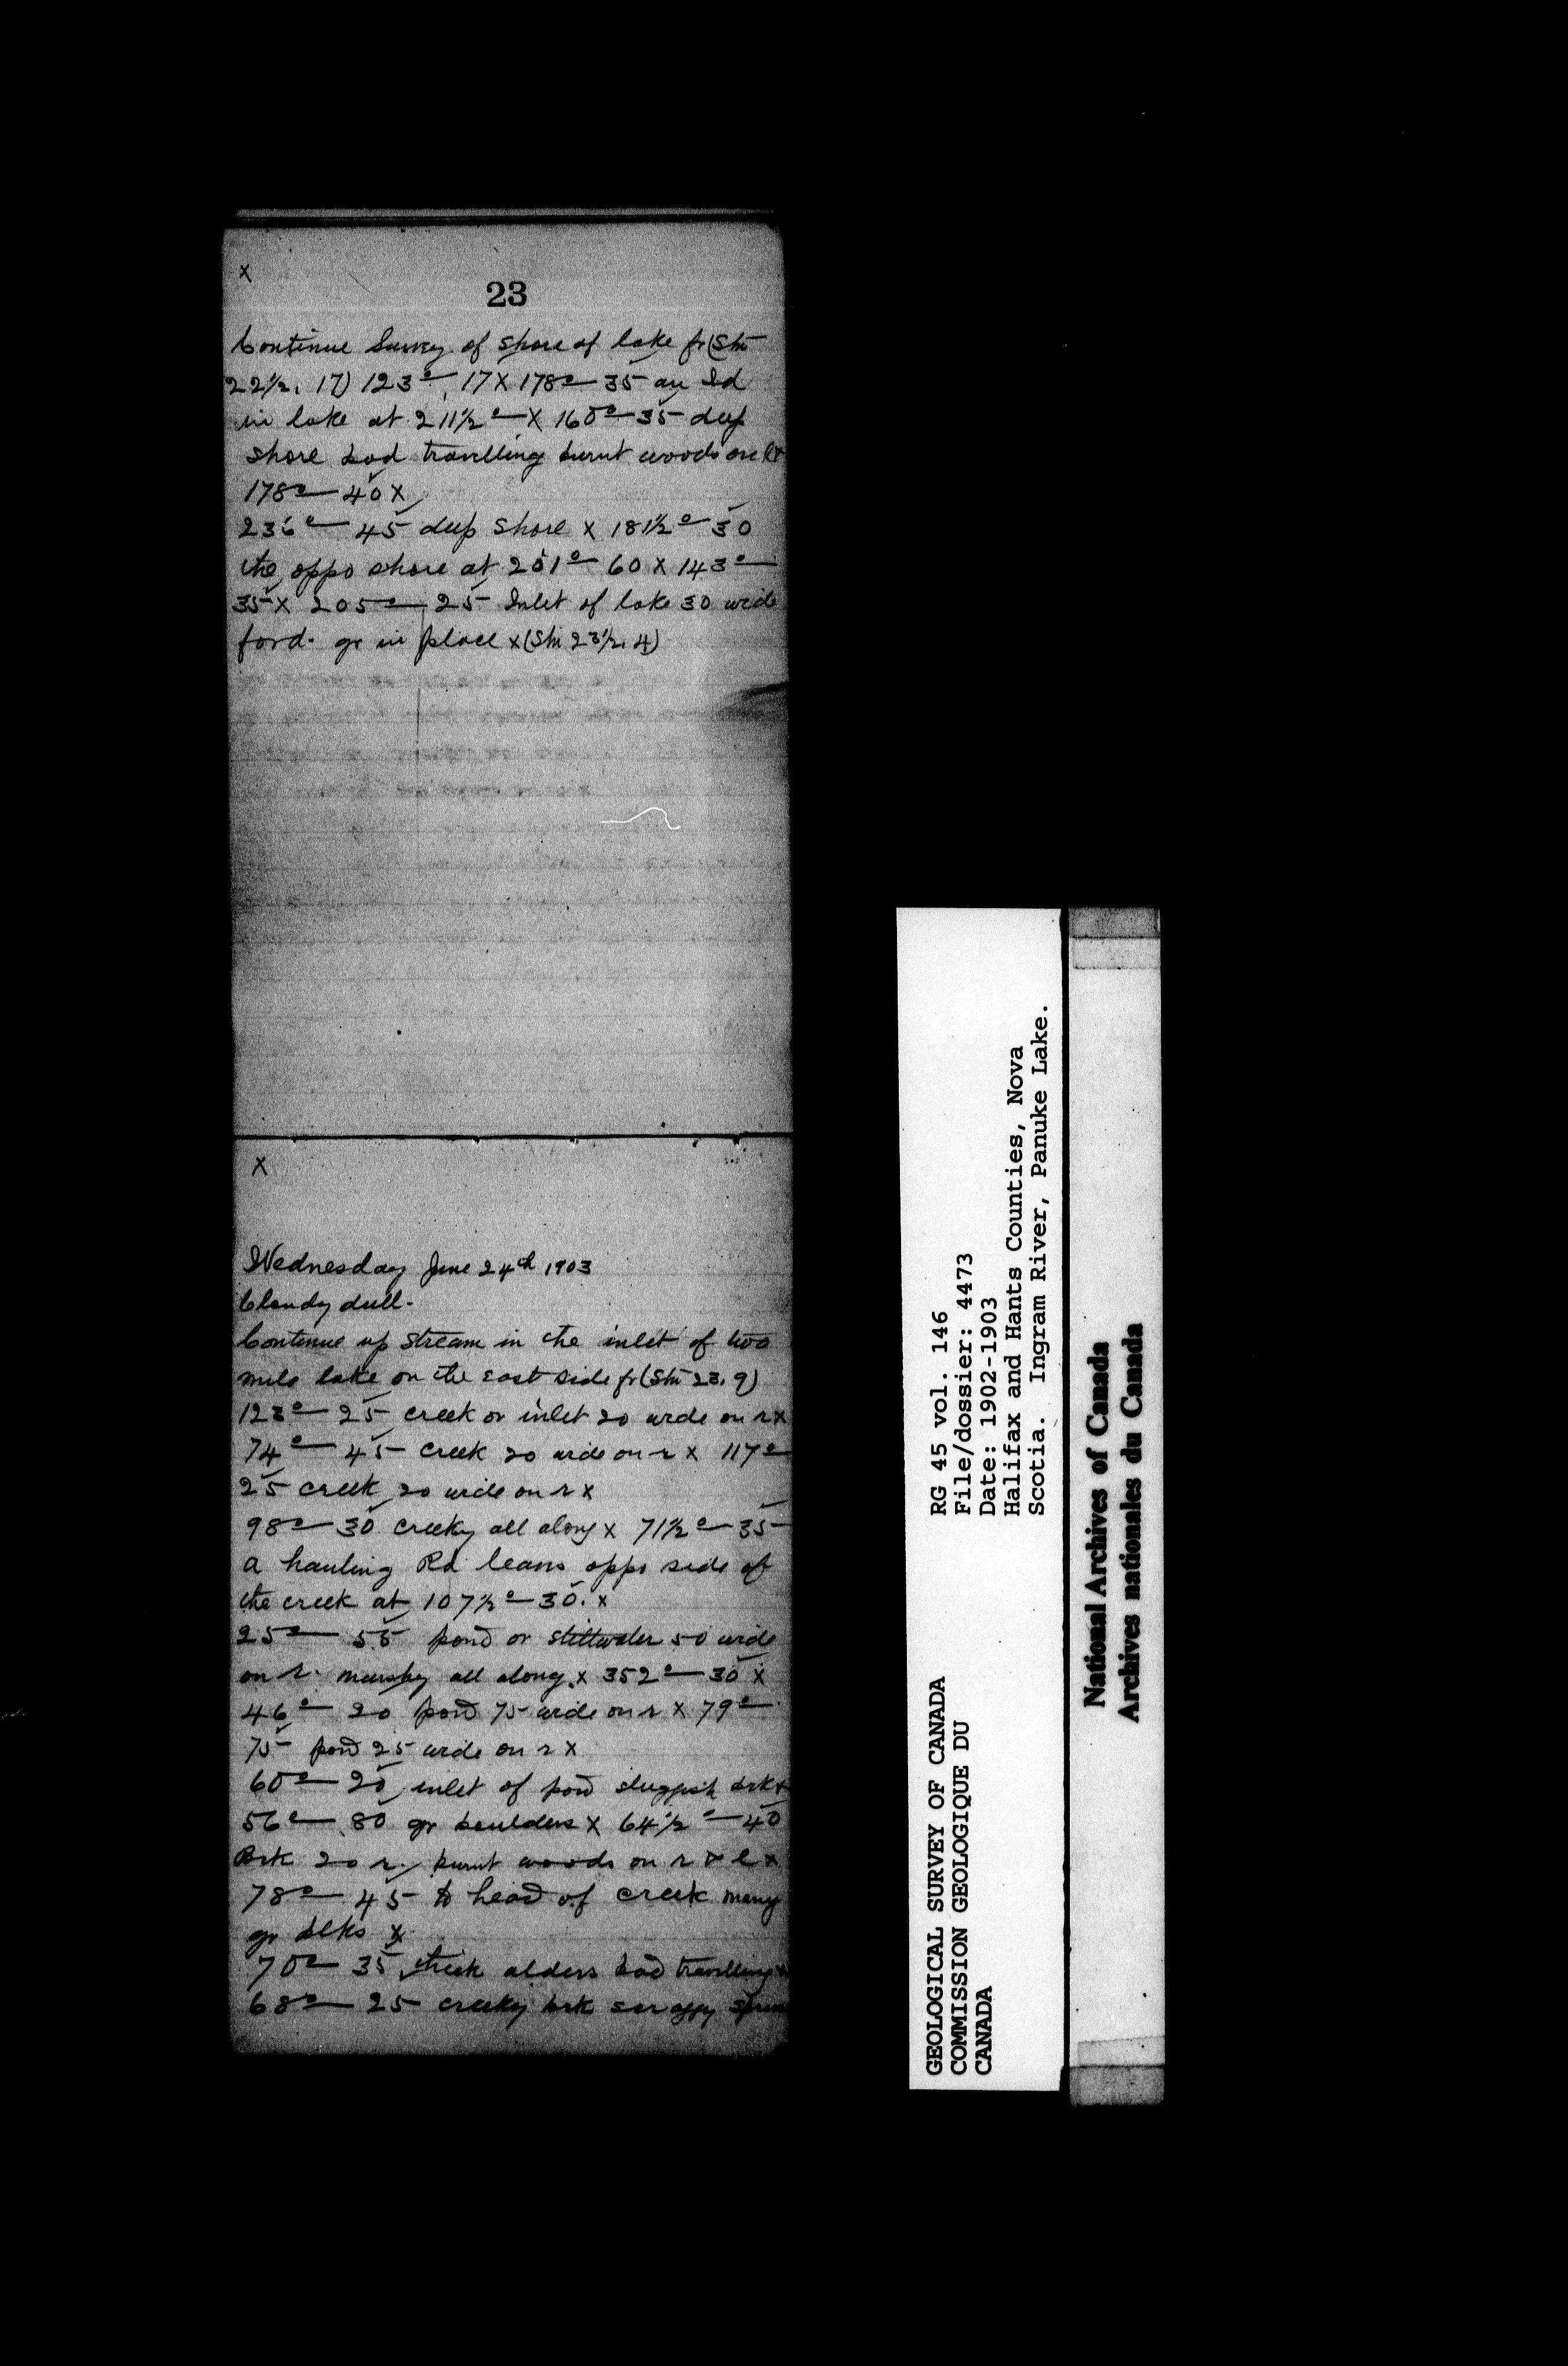 x
23
Continue Survey of shore of lake fr (Stn
22½, 17) 123° — 17 X 178° — 35 an Id
in lake at 211½° — X 160° — 35 deep
shore bad travelling burnt woods on l x
178° — 40 X
236° — 45 deep shore x 181½° — 30
the oppo shore at 201° — 60 x 143° —
35 X 205° — 25 Inlet of lake 30 wide
ford. gr in place x (Stn 23½, 4)
x
Wednesday June 24th 1903
Cloudy dull.
Continue up stream in the inlet of two
mile lake on the east side fr (Stn 23, 9)
123° — 25 creek or inlet 20 wide on r x
74° — 45 creek 20 wide on r x 117° —
25 creek 20 wide on r x
98° — 30 creeky all along x 71½° — 35
a hauling Rd leaves oppo side of
the creek at 107½° — 30. x
25° — 55 pond or stillwater 50 wide
on r. marshy all along x 352° — 30 x
46° — 20 pond 75 wide on r x 79° —
75 pond 25 wide on r x
60° — 20 inlet of pond sluggish brk x
56° — 80 gr boulders x 64½° — 40
Brk 20 r. burnt woods on r & l x
78° — 45 to head of creek many
gr blks x
70° — 35 thick alders bad travelling x
68° — 25 creeky brk scraggy
GEOLOGICAL SURVEY OF CANADA
COMMISSION GEOLOGIQUE DU
CANADA
RG 45 vol. 146
File/dossier: 4473
Date: 1902-1903
Halifax and Hants Counties, Nova
Scotia. Ingram River, Panuke Lake.
National Archives of Canada
Archives nationales du Canada